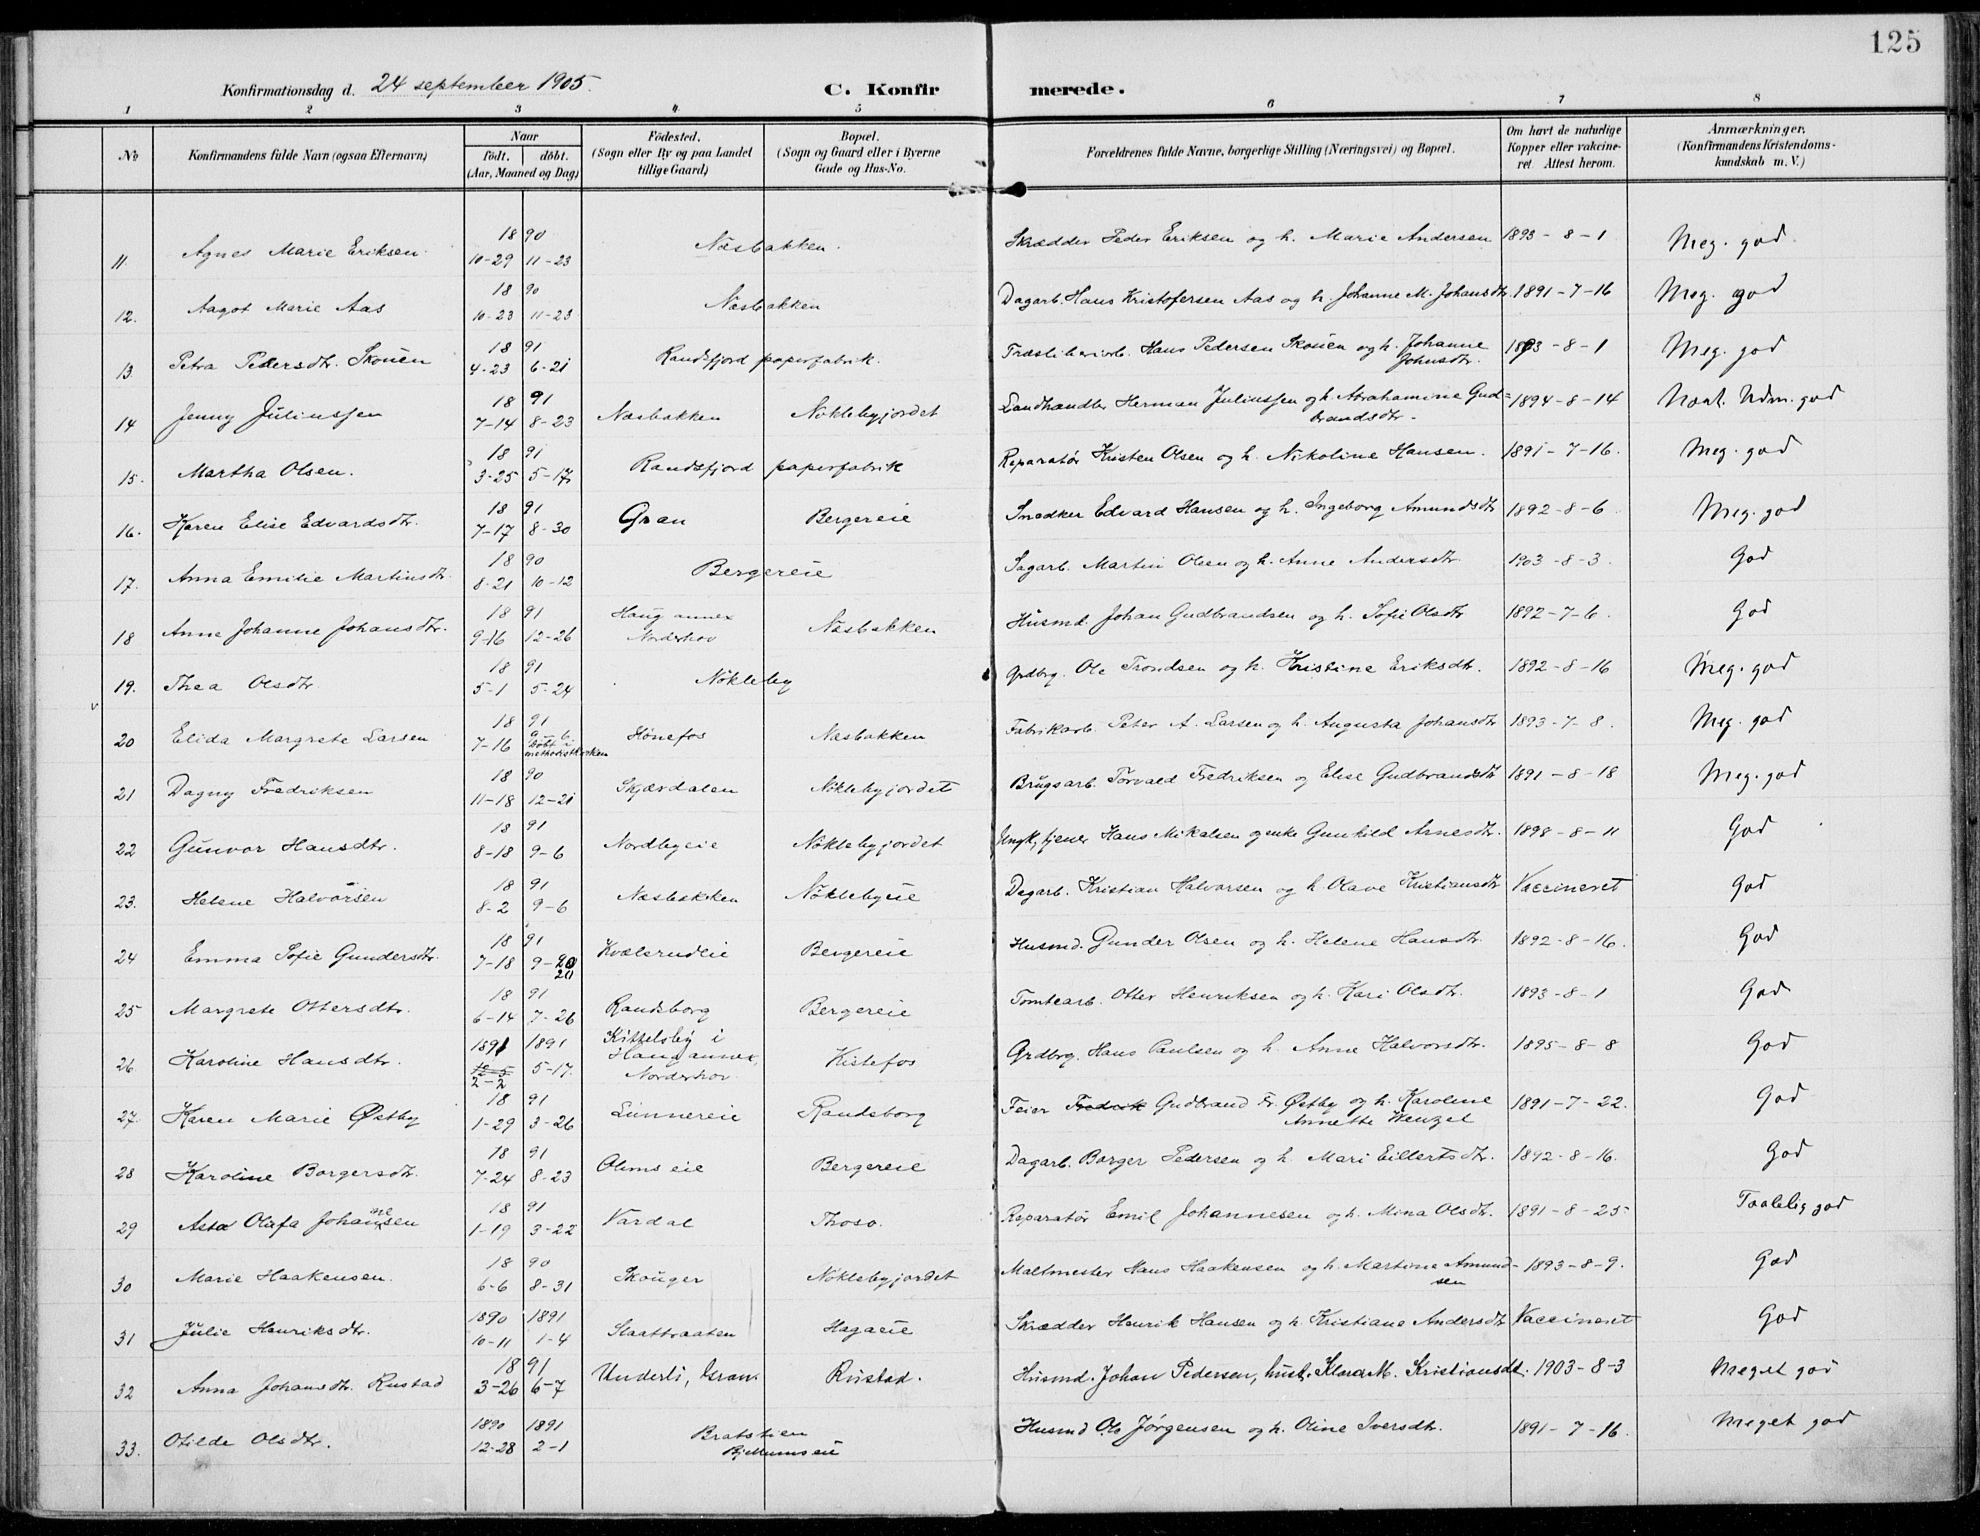 125
Konfirmationsdag d. 24 september 1905.
C. Konfir merede.
1 2 3 4 5 6 7 8
No Konfirmandens fulde Navn (ogsaa Efternavn) Naar født. døbt. (Aar, Maaned og Dag) Fødested. (Sogn eller By og paa Landet tillige Gaard) Bopæl. (Sogn og Gaard eller i Byerne Gade og Hus-No. Forældrenes fulde Navne, borgerlige Stilling (Næringsvei) og Bopæl. Om havt de naturlige Kopper eller vakcineret. Attest herom. Anmærkninger, (Konfirmandens Kristendomskundskab m. V.)
11 Agnes Marie Eriksen. 1890 10-29 11-23 Næsbakken. Skrædder Peder Eriksen og h. Marie Andersen 1893-8-1 Meg. god.
12. Aagot Marie Aas 1890 10-23 11-23 Næsbakken Dagarb. Hans Kristofersen Aas og h. Johanne M. Johansdtr. 1891-7-16 Meg. god
13. Petra Pedersdtr. Skouen 1891 4-23 6-21 Randsfjord paperfabrik. Træsliberiarb. Hans Pedersen Skouen og h. Johanne Johnsdtr. 1893-8-1 Meg. god
14 Jenny Juliussen 1891 7-14 8-23 Næsbakken Nøklebyjordet Landhandler Herman Juliussen og h. Abrahamine Gudbrandsdtr. 1894-8-14 god
15. Martha Olsen. 1891 3-25 5-17 Randsfjord paperfabrik Reparatør Kristen Olsen og h. Nikoline Hansen. 1891-7-16. Meg. god
16. Karen Elise Edvardsdtr. 1891 7-17 8-30 Gran Bergereie Snedker Edvard Hansen og h. Ingeborg Amundsdtr 1892-8-6 Meg. god
17. Anna Emilie Martinsdtr. 1890 8-21 10-12 Bergereie Sagarb. Martin Olsen og h. Anne Andersdtr. 1903-8-3. God
18 Anne Johanne Johansdtr. 1891 9-16 12-26 Haug annex Norderhov Næsbakken Husmd. Johan Gudbrandsen og h. Sofie Olsdtr 1892-7-6. God
19. Thea Olsdtr 1891 5-1 5-24 Nøkleby Grdbrg. Ole Trondsen og h. Kristine Eriksdtr. 1892-8-16 Meg. god
20 Elida Margrete Larsen 1891 7-16 9-6 Døbt i methodistkirken Hønefos Næsbakken Fabrikarb. Peter A. Larsen og h. Augusta Johansdtr 1893-7-8. Meg. god
21 Dagny Fredriksen 1890 11-18 12-21 Skjærdalen Nøklebyjordet Brugsarb. Torvald Fredriksen og Elise Gudbrandsdtr 1891-8-18 Meg. god
22 Gunvor Hansdtr. 1891 8-18 9-6 Nordbyeie Nøklebyjordet Ungk, tjener Hans Mikalsen og enke Gunhild Arnesdtr. 1898-8-11 God
23. Helene Halvorsen 1891 8-2 9-6 Næsbakken Nøklebyeie Dagarb. Kristian Halvorsen og h. Olave Kristiansdtr Vaccineret God
24 Emma Sofie Gundersdtr. 1891 7-18 9-20 20 Kvælsrudeie Bergereie Husmd. Gunder Olsen og h. Helene Hansdtr. 1892-8-16. God
25 Margrete Ottersdtr. 1891 6-14 7-26 Randsborg Bergereie Tomtearb. Otter Henriksen og h. Kari Olsdtr. 1893-8-1 God
26. Karoline Hansdtr. 1891 2-2 1891 5-17. Kittelsby i Haug annex, Norderhov Kistefos Grdbrg. Hans Paulsen og h. Anne Halvorsdtr. 1895-8-8 God
27. Karen Marie Østby 1891 1-29 3-26 Lunnereie Randsborg Feier Fredrik Gudbrand Fr. Østby og h. Karoline Annette Wenzel 1891-7-22. God
28 Karoline Borgersdtr. 1891 7-24 8-23 Olimseie Bergereie Dagarb. Borger Pedersen og h. Mari Eilertsdtr. 1892-8-16. God
29 Asta Olufa Johannesen 1891 1-19 3-22 Vardal Thoso. Reparatør Emil Johannesen og h. Mina Olsdtr. 1891-8-25 Taalelig god
30 Marie Haakensen. 1890 6-6 8-31 Skouger Nøklebyjordet Maltmester Hans Haakensen og h. Martine Amundsen 1893-8-9. God
31 Julie Henriksdtr. 1890 10-11 1891 1-4 Slaattraaten Hagaeie Skrædder Henrik Hansen og h. Kristiane Andersdtr Vaccineret God
32 Anna Johansdtr. Rustad 1891 3-26 6-7 Underli, Gran. Rustad. Husmd. Johan Pedersen, hust. Klara M. Kristiansdt. 1903-8-3 Meget god
33. Otilde Olsdtr. 1890 12-28 1891 2-1 Bratstien Bjellumseie Husmd Ole Jørgensen og h. Oline Iversdtr. 1891-7-16. Meget god